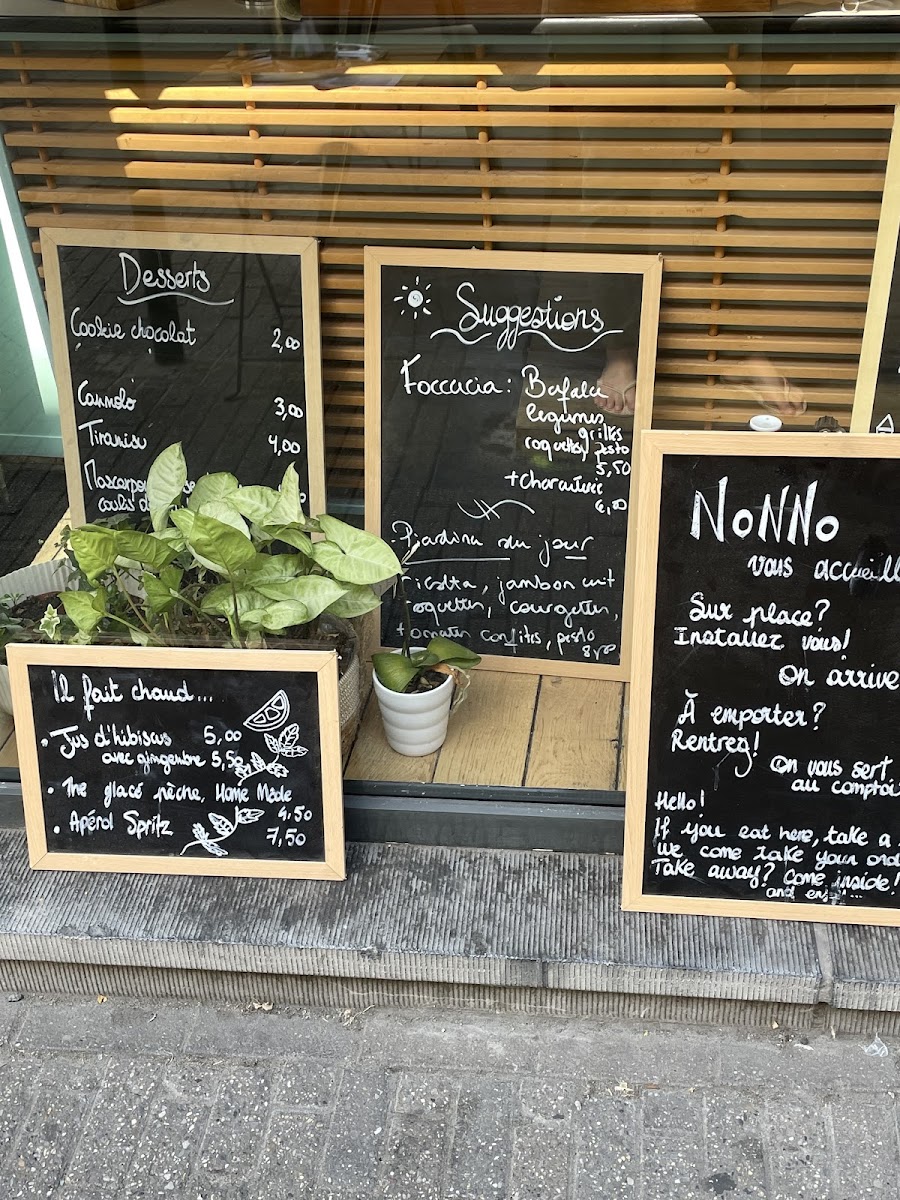 Desserts
Cookie chocolat 2,00
Cannolo 3,00
Tiramisu 4,00
coulis
Suggestions
Foccacia : Bufala
légumes
grillés
roquette, pesto
5,50
+ charcuterie
6,00
Piadina du jour
ricotta, jambon cuit
roquette, courgettes,
tomates confites, pesto
Il fait chaud...
• Jus d'hibiscus 5,00
avec gingembre 5,50
• The glacé pêche, Home Made
4.50
• Apérol Spritz 7,50
NoNNo
vous accueill
Sur place?
Installez vous!
On arrive
À emporter?
Rentrez!
On vous sert
au comptoi
Hello!
If you eat here, take a
we come take your ord
Take away? Come inside!
and